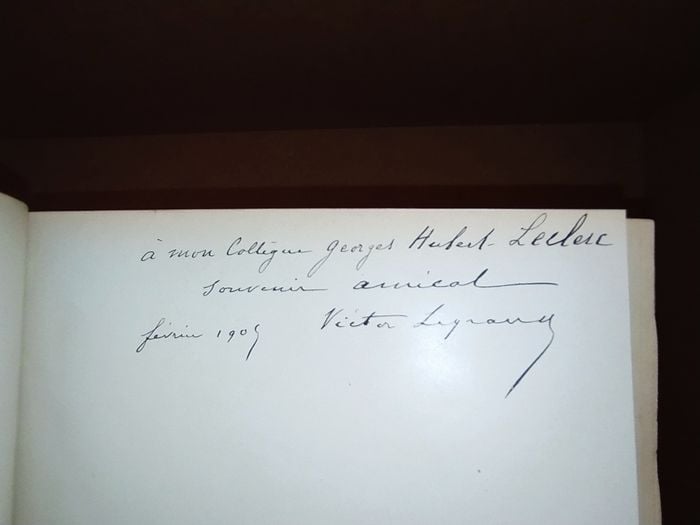 à mon Collègue Georges Hubert-Leclerc
souvenir amical
Victor Legrand
février 1905